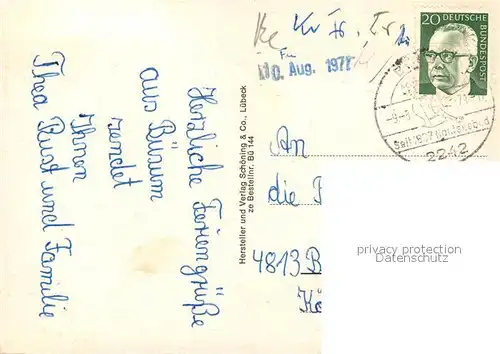 Herzliche Feriengrüße
aus Büsum
sendet
Ihnen
Thea Rust und Familie
Hersteller und Verlag Schöning & Co., Lübeck
Bestellnr. Bü 144
20 DEUTSCHE BUNDESPOST
10. Aug. 197
2242
An
die
4813 B
privacy protection
Datenschutz